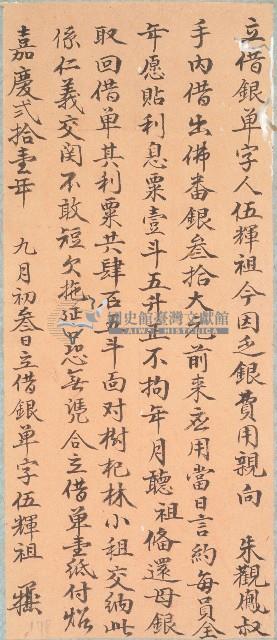 立借銀单字人伍輝祖今因乏銀費用親向 朱觀鳳叔
手內借出佛番銀叁拾大元前来应用當日言約每員全
年愿貼利息粟壹斗五升其不拘年月聽祖俻還母銀
取回借单其利粟共肆石五斗面对樹杞林小租交納此
係仁義交関不敢短欠拖延恐無凴合立借单壹紙付炤
嘉慶弍拾壹年 九月初叁日立借銀单字伍輝祖
國史館臺灣文獻館
TAIWAN HISTORICA